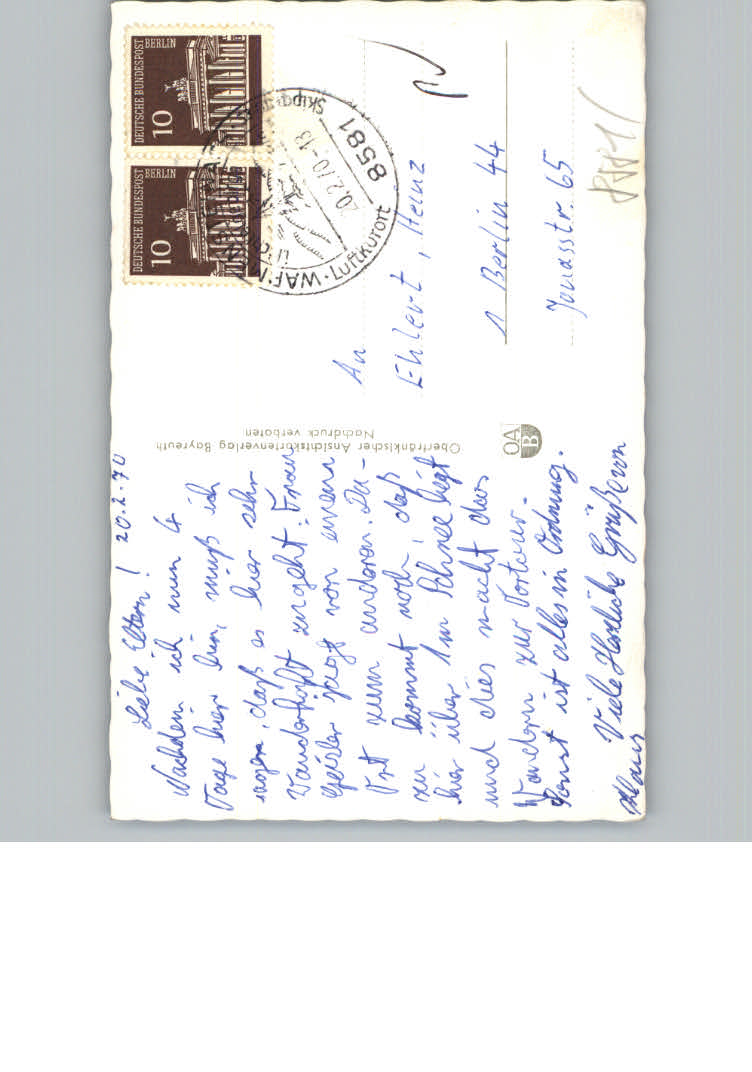 20.2.70
Liebe Eltern!
Nachdem ich nun 4
Tage hier bin, muß ich
sagen, daß es hier sehr
wanderhaft zugeht; Frau
Geisler jagt von einem
Ort zum anderen. Da-
zu kommt noch, daß
hier über 1m Schnee liegt
und dies macht das
Wandern zur Tortour.
Sonst ist alles in Ordnung.
Viele Herzliche Grüße von
Oberfränkischer Ansichtskartenverlag Bayreuth
Nachdruck verboten
OA
B
DEUTSCHE BUNDESPOST BERLIN
10
DEUTSCHE BUNDESPOST BERLIN
10
8581
20.2.70-13
Luftkurort
An
Ehlert, Heinz
1 Berlin 44
Jonasstr. 65
8581